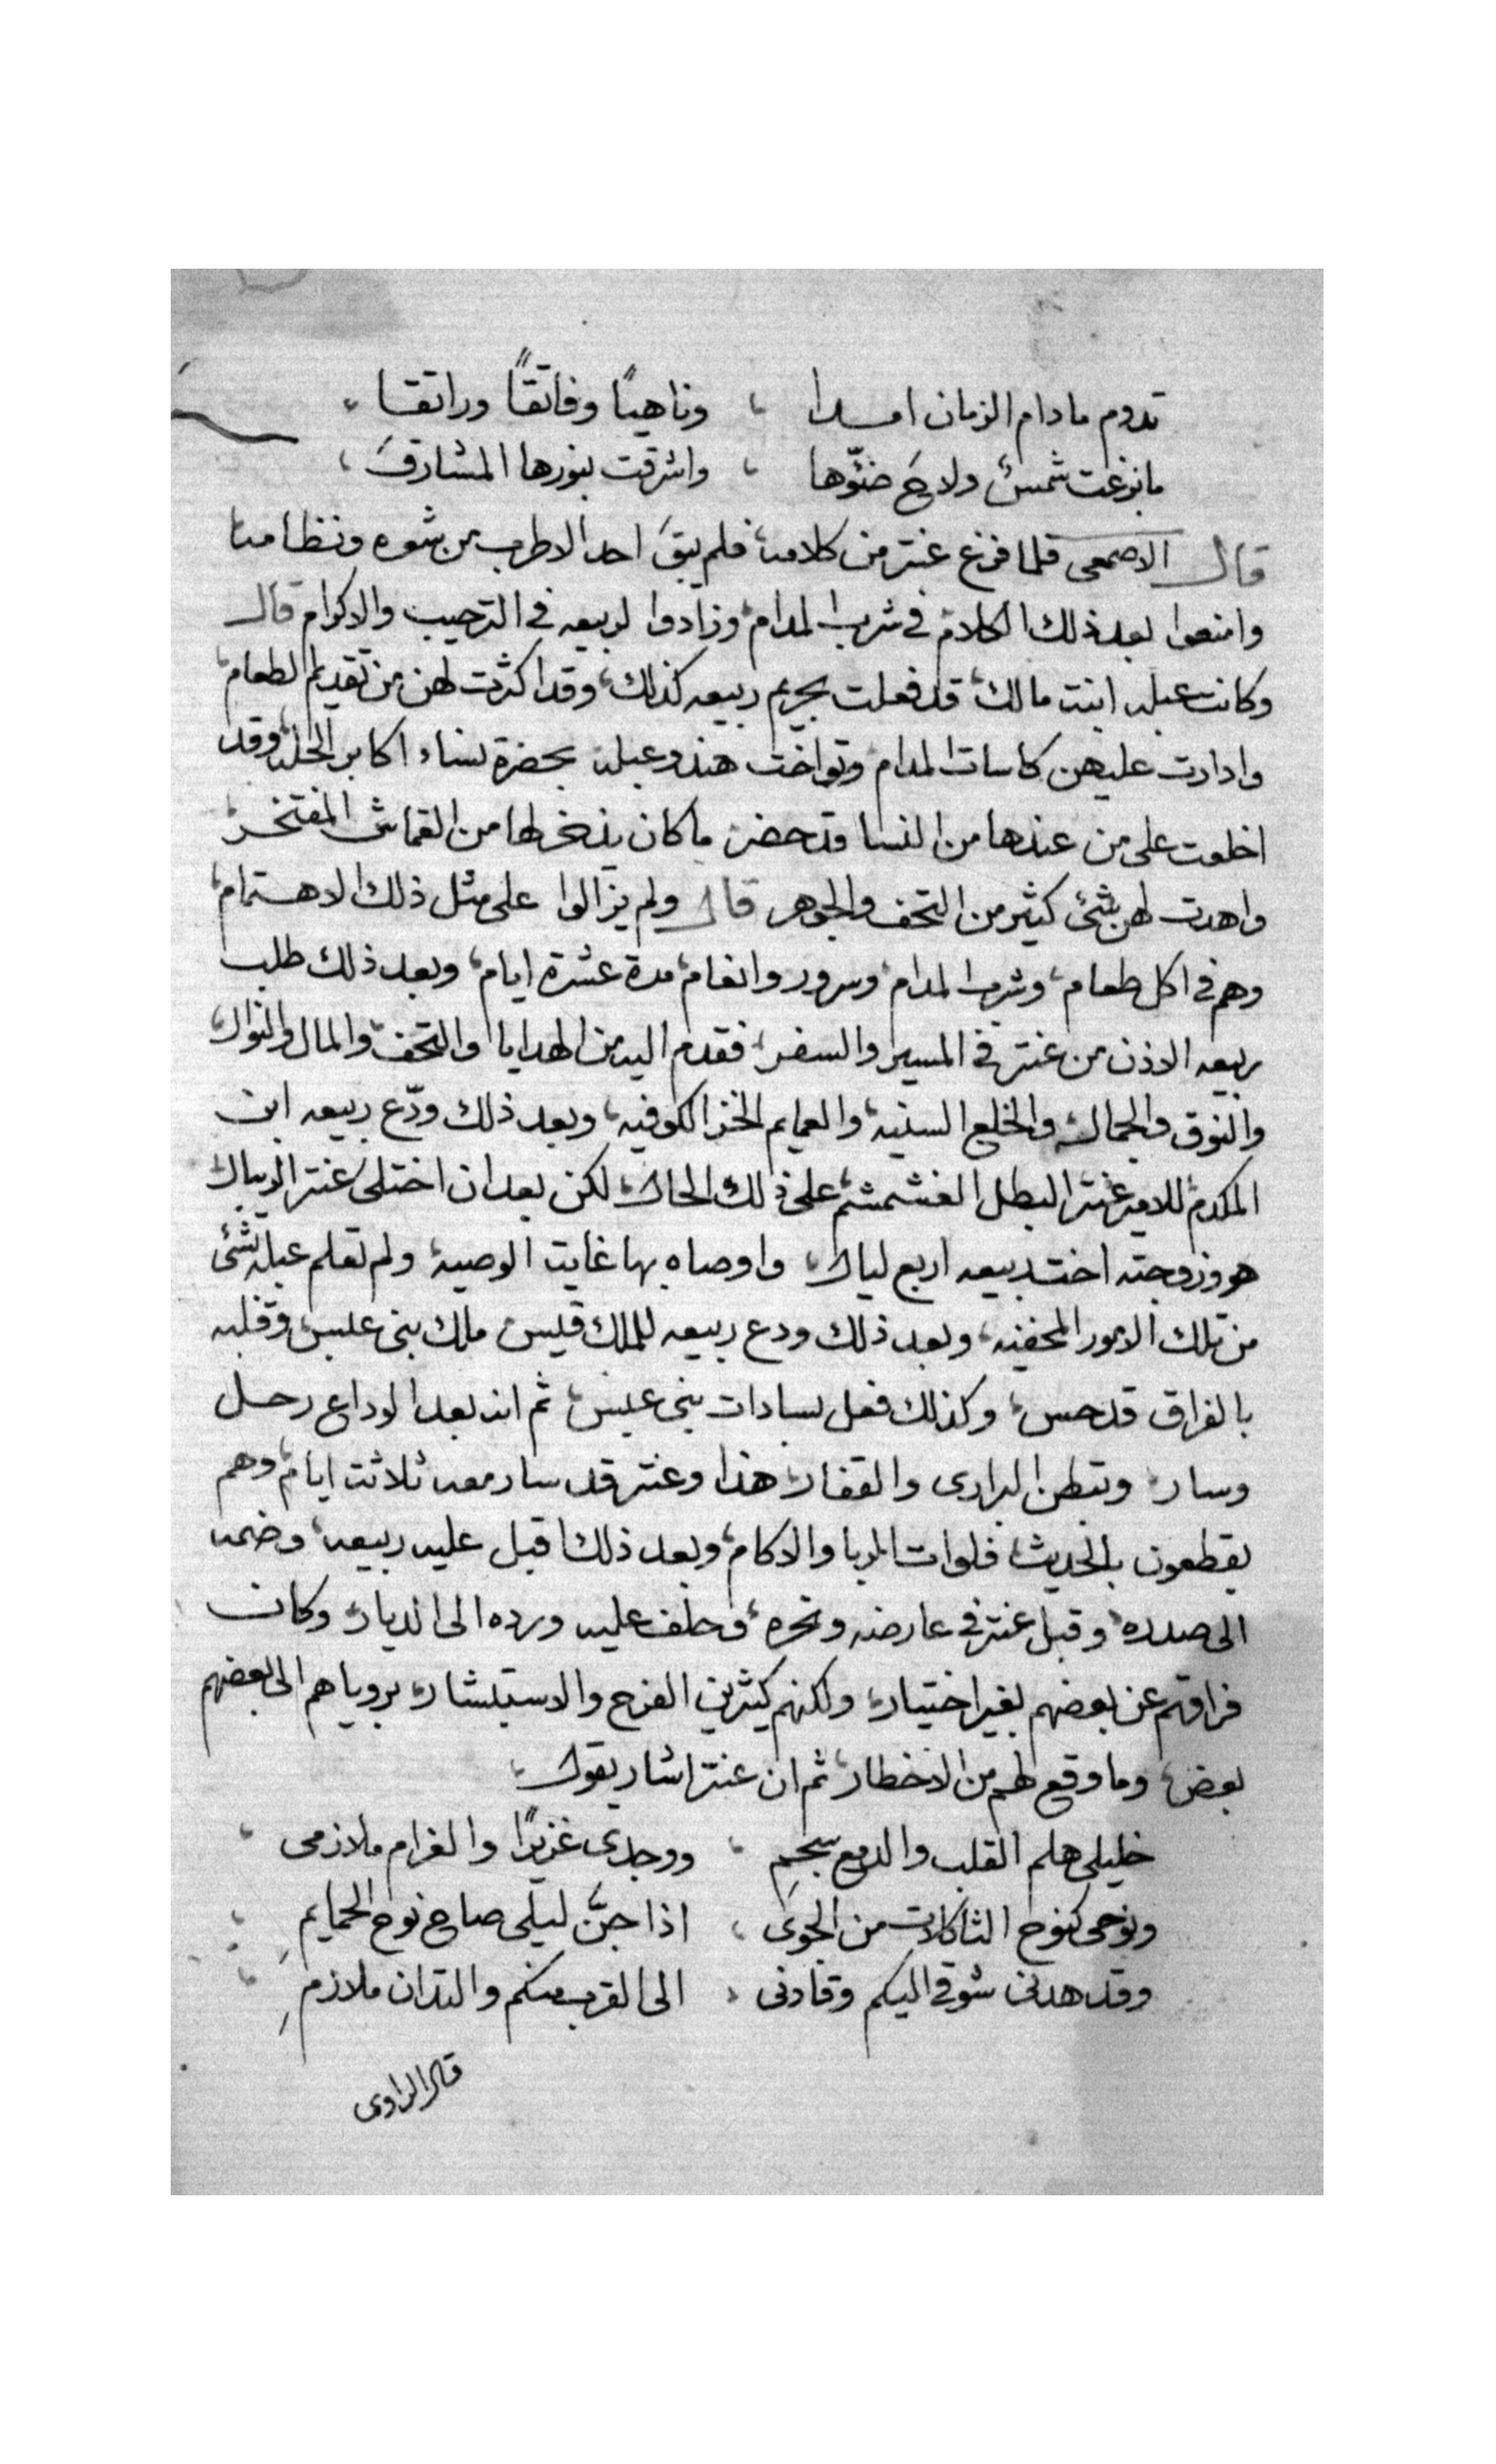 تدوم مادام الزمان امـــرا ، وناهيًا وفاتقًا وراتقــا ،
مابزغت شمسٌ ولاحَ ضئوّها ، واشرقت بنورها المشارقَ ،
قال الاصمعى فلما فرغ عنتر من كلامه، فلم يبقَ احد الا طرب من شعره ونظامه
وامنعوا بعد ذلك الكلام، فى شرب المدام، وزادوا لربيعه فى الترحيب والاكرام قال
وكانت عبله ابنت مالك، قد فعلت بحريم ربيعه كذلك، وقد اكثرت لهن من تقديم الطعام،
وادارت عليهن كاسات المدام، وتواخت هند وعبله بحضرة نساء اكابر الحله، وقد
اخلعت على من عندها من النسا وقد حضر، ما كان يذخر لها من القماش المفتخر،
واهدت لهن بشئ كثير من التحف والجوهر قال ولم يزالوا على مثل ذلك الاهتمام،
وهم فى اكل طعام، وشرب المدام، وسرور وانغام، مدة عشرة ايام، وبعد ذلك طلب
ربيعه الاذن من عنتر فى المسير والسفر، فقدم اليه من الهدايا والتحف والمال والنوال،
والنوق والجمال، والخلع السنيه، والعمايم الخز الكوفيه، وبعد ذلك ودّع ربيعه ابن
المكدم للامير عنتر البطل الغشمشم، على ذلك الحال، لكن بعد ان اختلى عنتر الريبال
هو وزوجته اخت ربيعه اربع ليال، واوصاه بها غايت الوصيه، ولم تعلم عبله بشئ
من تلك الامور المخفيه، وبعد ذلك ودع ربيعه للملك قيس ملك بنى عبس، وقلبه
بالفراق قد حس، وكذلك فعل بسادات بنى عبس، ثم انه بعد الوداع رحل
وسار، وتبطن البرارى والقفار، هذا وعنتر قد سار معه ثلاثت ايام، وهم
يقطعون بالحديث، فلوات الربا والاكام، وبعد ذلك اقبل عليه ربيعه، وضمه
الى صدره، وقبل عنتر فى عارضه ونحره، وحلف عليه ورده الى الديار، وكان
فراقهم عن بعضهم بغير اختيار، ولكنهم كيثرين الفرح والاستبشار، بروياهم الى بعضهم
بعض، وما وقع لهم من الاخطار، ثم ان عنتر اشار يقول،
خليلى هلم القلب والدمع سجمِ ، ووجدى غزيرًا والغرام ملازمى ،
ونوحى كنوح الثاكلات من الجوىَ ، اذا جنَّ ليلى صاح نوح الحمايمِ ،
وقد هدنى شوقى اليكم وقادنى ، الى القرب منكم والتدان ملازمِ ،
قال الراوى